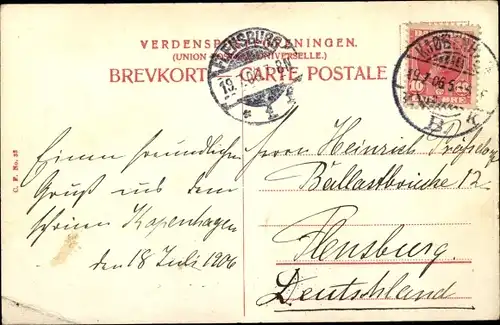 VERDENSPOSTFORENINGEN.
(UNION POSTALE UNIVERSELLE.)
BREVKORT — CARTE POSTALE
FLENSBURG
19.7.06
19.7.06
B
K
10
C. F. No. 23
Einen freundlichen
Gruß aus dem
schönen Kopenhagen
den 18 Juli 1906
Herrn Heinrich
Ballastbrücke 12.
Flensburg.
Deutschland.